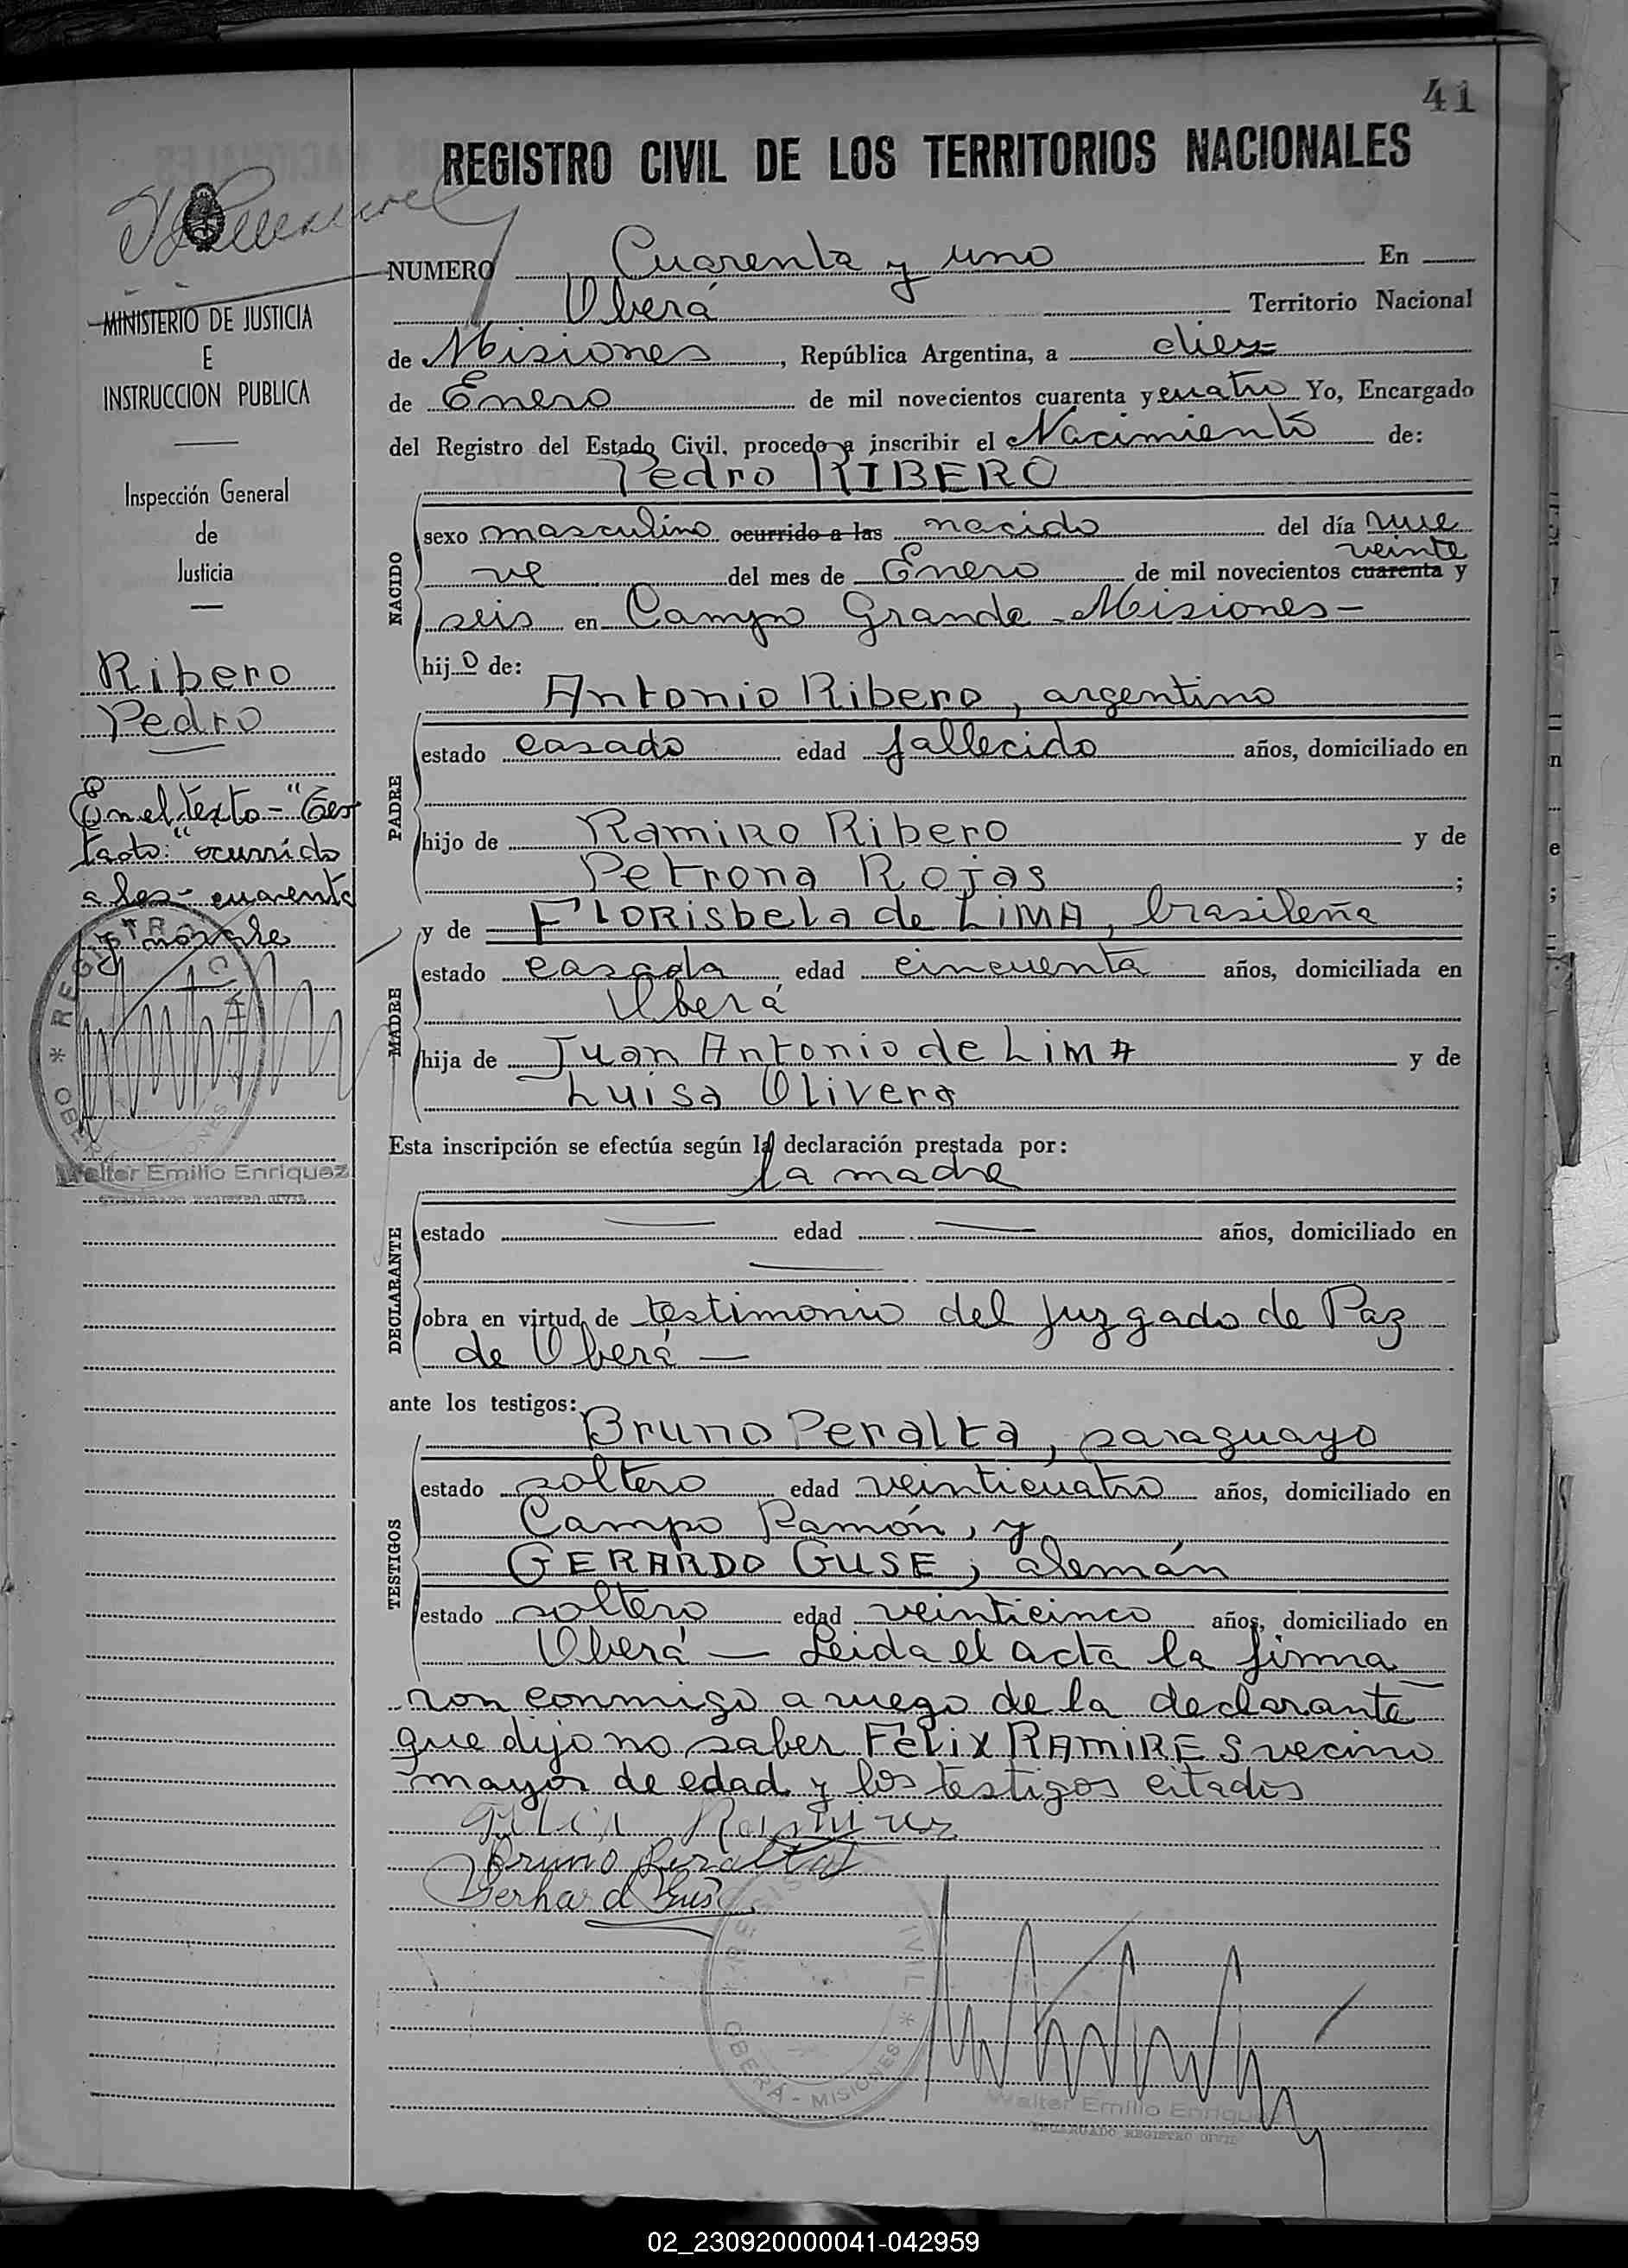 41
REGISTRO CIVIL DE LOS TERRITORIOS NACIONALES
MINISTERIO DE JUSTICIA
E
INSTRUCCION PUBLICA
Inspección General
de
Justicia
Ribero
Pedro
En el texto - "Tes
tado: "ocurrido
a las - cuarenta
no vale
REGISTRO CIVIL * OBERÁ - MISIONES *
Walter Emilio Enriquez
ENCARGADO REGISTRO CIVIL
NUMERO Cuarenta y uno En
Oberá Territorio Nacional
de Misiones, República Argentina, a diez
de Enero de mil novecientos cuarenta y cuatro Yo, Encargado
del Registro del Estado Civil, procedo a inscribir el Nacimiento de:
Pedro RIBERO
NACIDO
sexo masculino ocurrido a las nacido del día nue
veinte
ve del mes de Enero de mil novecientos cuarenta y
seis en Campo Grande - Misiones -
hijo de:
PADRE
Antonio Ribero, argentino
estado casado edad fallecido años, domiciliado en
hijo de Ramiro Ribero y de
Petrona Rojas ;
MADRE
y de FLORisbela de LiMA, brasileña
estado casada edad cincuenta años, domiciliada en
Oberá
hija de Juan Antonio de LimA y de
Luisa Olivera
Esta inscripción se efectúa según la declaración prestada por:
la madre
DECLARANTE
estado — edad — años, domiciliado en
—
obra en virtud de testimonio del Juzgado de Paz
de Oberá —
ante los testigos:
TESTIGOS
Bruno Peralta, paraguayo
estado soltero edad veinticuatro años, domiciliado en
Campo Ramón, y
GERARDO GUSE, alemán
estado soltero edad veinticinco años, domiciliado en
Oberá — Leida el acta la firma
ron conmigo a ruego de la declarante
que dijo no saber FELIX RAMIRES vecino
mayor de edad y los testigos citados
Felix Ramires
Bruno Peralta
Gerhard Guse
REGISTRO CIVIL * OBERÁ - MISIONES *
Walter Emilio Enriquez
ENCARGADO REGISTRO CIVIL
02_230920000041-042959